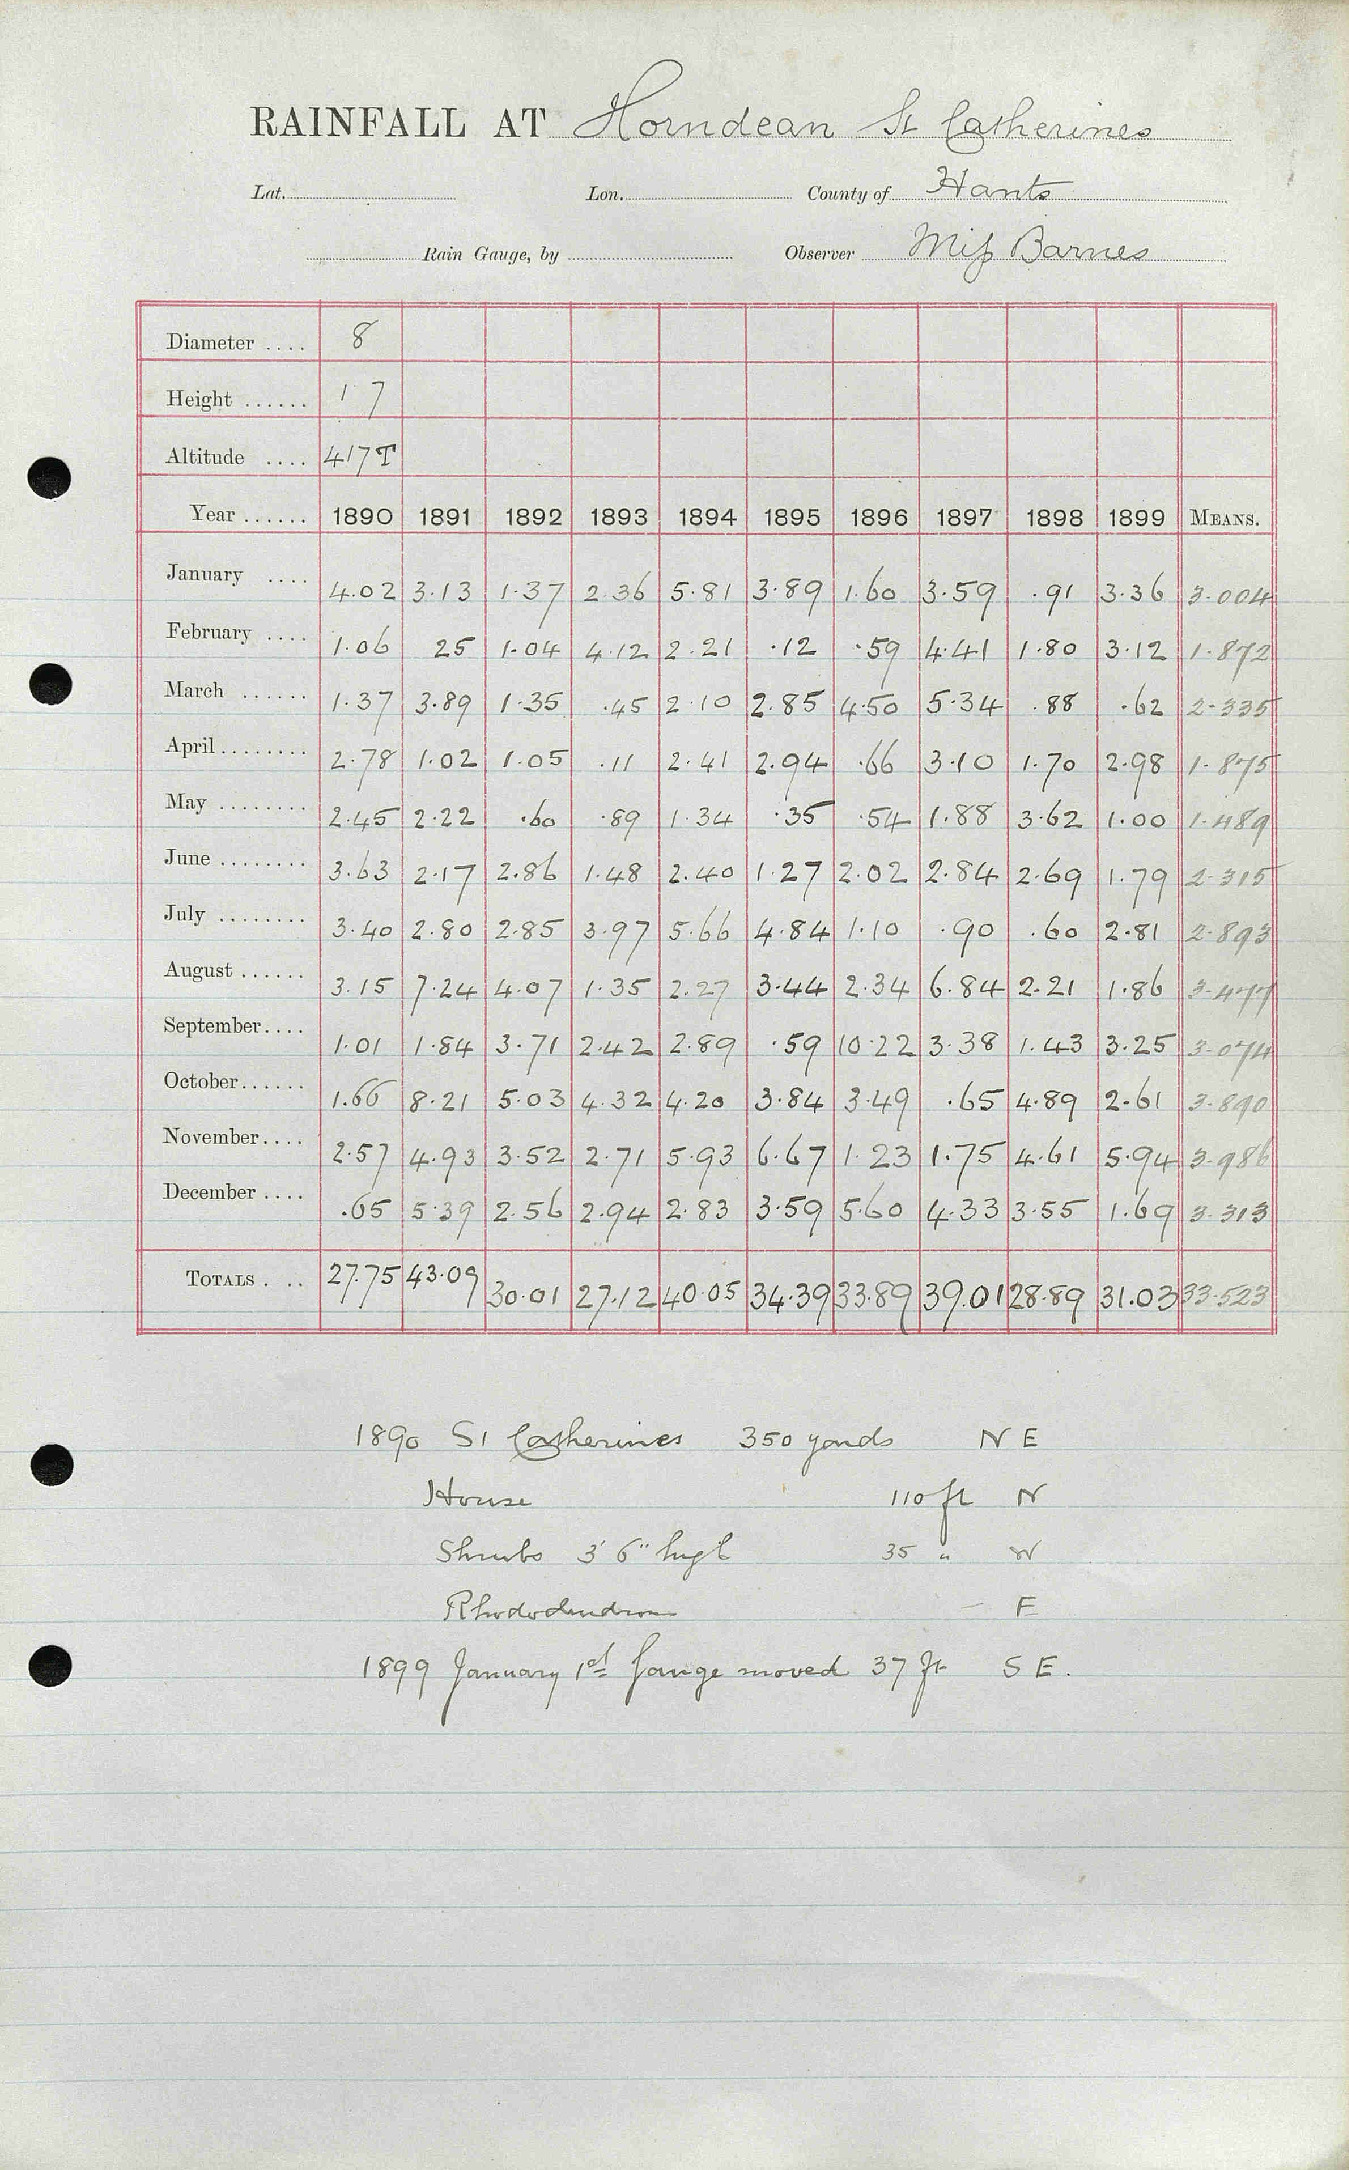 RAINFALL AT Horndean St Catherines
Lat. Lon. County of Hants
Rain Gauge, by Observer Miss Barnes
Diameter .... 8
Height ...... 1 7
Altitude .... 417 T
Year ...... 1890 1891 1892 1893 1894 1895 1896 1897 1898 1899 MEANS.
January .... 4.02 3.13 1.37 2.36 5.81 3.89 1.60 3.59 .91 3.36 3.004
February .... 1.06 25 1.04 4.12 2.21 .12 .59 4.41 1.80 3.12 1.872
March ...... 1.37 3.89 1.35 .45 2.10 2.85 4.50 5.34 .88 .62 2.335
April ........ 2.78 1.02 1.05 .11 2.41 2.94 .66 3.10 1.70 2.98 1.875
May ........ 2.45 2.22 .60 .89 1.34 .35 .54 1.88 3.62 1.00 1.489
June ........ 3.63 2.17 2.86 1.48 2.40 1.27 2.02 2.84 2.69 1.79 2.315
July ........ 3.40 2.80 2.85 3.97 5.66 4.84 1.10 .90 .60 2.81 2.893
August ...... 3.15 7.24 4.07 1.35 2.27 3.44 2.34 6.84 2.21 1.86 3.477
September .... 1.01 1.84 3.71 2.42 2.89 .59 10.22 3.38 1.43 3.25 3.074
October ...... 1.66 8.21 5.03 4.32 4.20 3.84 3.49 .65 4.89 2.61 3.890
November .... 2.57 4.93 3.52 2.71 5.93 6.67 1.23 1.75 4.61 5.94 3.986
December .... .65 5.39 2.56 2.94 2.83 3.59 5.60 4.33 3.55 1.69 3.313
TOTALS . .. 27.75 43.09 30.01 27.12 40.05 34.39 33.89 39.01 28.89 31.03 33.523
1890 St Catherines 350 yards N E
House 110 ft N
Shrubs 3' 6" high 35 " W
Rhododendron — E
1899 January 1st Gauge moved 37 ft S E.